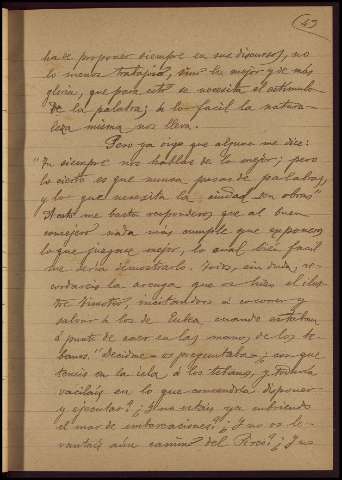 (43
ha de proponer siempre en sus discursos, no
lo menos trabajoso, sino lo mejor y de más
gloria, que para esto se necesita el estímulo
de la palabra; á lo facil la natura-
leza misma nos lleva.
Pero ya oigo que alguno me dice:
"Tu siempre nos hablas de lo mejor; pero
lo cierto es que nunca pasas de palabras,
y lo que necesita la ciudad son obras"
A esto me basta responderos que al buen
consejero nada más cumple que exponeros
lo que juzgue mejor, lo cual bien facil
me seria demostrarlo. Todos, sin duda, re-
cordareis la arenga que os hizo el ilus-
tre Timoteo, incitandoos á socorrer y
salvar á los de Eubea cuando estaban
á punto de caer en las manos de los te-
banos. "Decidme os preguntaba ¿con que
teneis en la isla á los tebanos, y todavia
vacilais en lo que convendria disponer
y ejecutar? ¿Y no estais ya cubriendo
el mar de embarcaciones? ¿Y no os le-
vantais aún camino del Pireo? ¿Y no